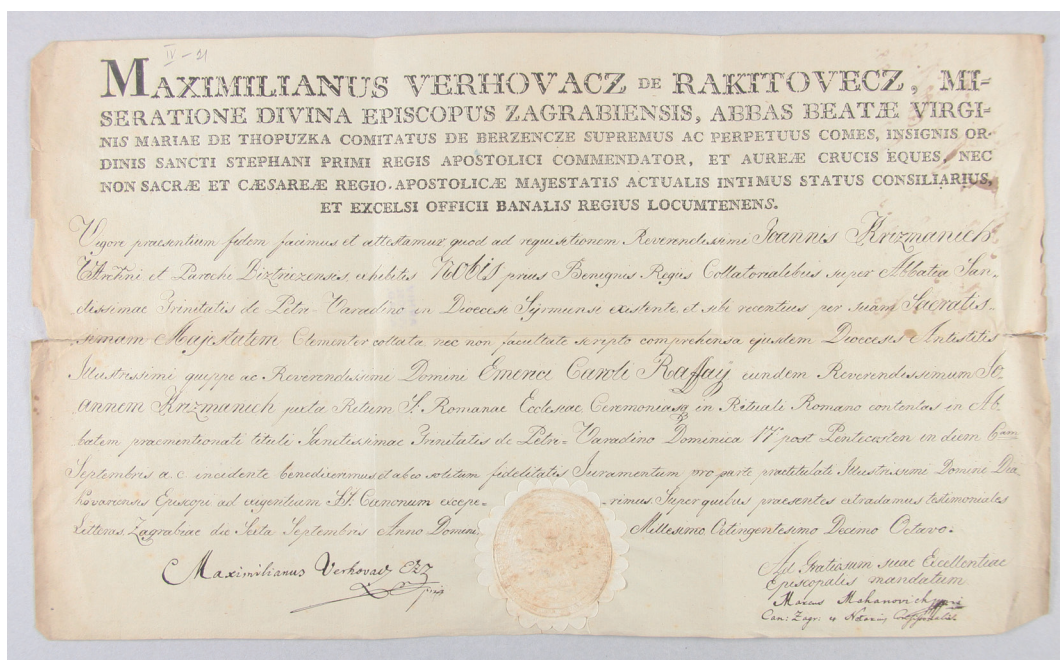 IV - 21
MAXIMILIANUS VERHOVACZ DE RAKITOVECZ, MI-
SERATIONE DIVINA EPISCOPUS ZAGRABIENSIS, ABBAS BEATÆ VIRGI-
NIS MARIAE DE THOPUZKA COMITATUS DE BERZENCZE SUPREMUS AC PERPETUUS COMES, INSIGNIS OR-
DINIS SANCTI STEPHANI PRIMI REGIS APOSTOLICI COMMENDATOR, ET AUREÆ CRUCIS EQUES, NEC
NON SACRÆ ET CÆSAREÆ REGIO-APOSTOLICÆ MAJESTATIS ACTUALIS INTIMUS STATUS CONSILIARIUS,
ET EXCELSI OFFICII BANALIS REGIUS LOCUMTENENS.
Vigore praesentium fidem facimus et attestamur quod ad requisitionem Reverendissimi Joannis Krizmanich
et Parochi Bisztriczensis, exhibitis Nobis prius Benignis Regiis Collatorialibus super Abbatia San-
ctissimae Trinitatis de Petri-Varadino in Dioecesi Syrmiensi existente, et sibi recentius per suam Sacratis-
simam Majestatem Clementer collata, nec non facultate scripto comprehensa ejusdem Dioecesis Antistitis
Illustrissimi quippe ac Reverendissimi Domini Emerici Caroli Raffay eundem Reverendissimum Jo-
annem Krizmanich juxta Ritum S. Romanae Ecclesiae Ceremoniasq in Rituali Romano contentas in Ab-
batem praementionati tituli Sanctissimae Trinitatis de Petri-Varadino Dominica 17ª post Pentecosten in diem 6am
Septembris a. c. incidente benedixerimus et ab eo solitum fidelitatis Juramentum pro parte praetitulati Illustrissimi Domini Dia-
kovariensis Episcopi ad exigentiam SS. Canonum excepe- rimus. Super quibus praesentes extradamus testimoniales
Litteras, Zagrabiae die Sexta Septembris Anno Domini, Millesimo Octingentesimo Decimo Octavo.
Maximilianus Verhovacz
Ad Gratiosum suae Excellentiae
Episcopalis mandatum
Marcus Mahanovich
Can: Zagr: et Notarius